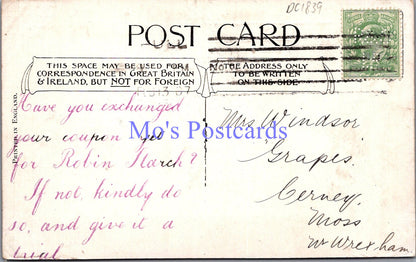 DC1839
POST CARD
THIS SPACE MAY BE USED FOR
CORRESPONDENCE IN GREAT BRITAIN
& IRELAND, BUT NOT FOR FOREIGN
THE ADDRESS ONLY
TO BE WRITTEN
ON THIS SIDE
PRINTED IN ENGLAND.
Have you exchanged
your coupon yet
for Robin Starch?
If not, kindly do
so, and give it a
trial.
Mo's Postcards
Mrs Windsor
Grapes.
Cerney.
Moss
Nr Wrexham.